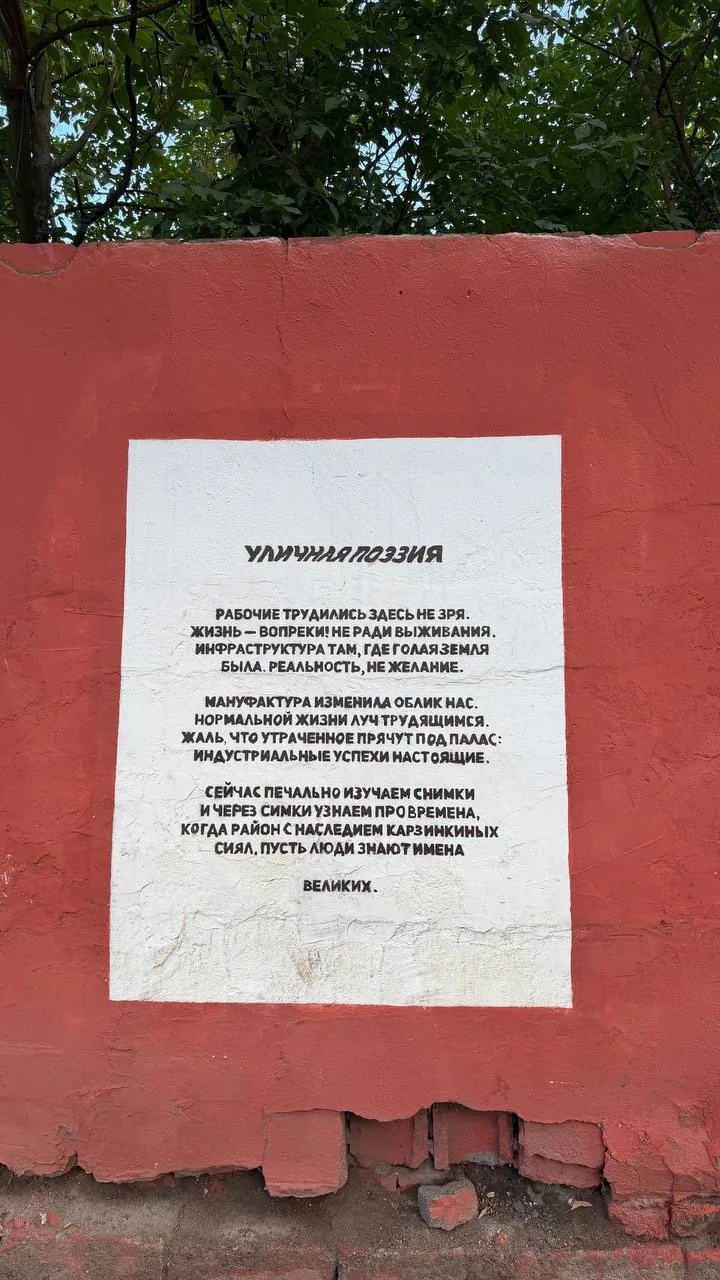 УЛИЧНАЯ ПОЭЗИЯ
РАБОЧИЕ ТРУДИЛИСЬ ЗДЕСЬ НЕ ЗРЯ.
ЖИЗНЬ — ВОПРЕКИ! НЕ РАДИ ВЫЖИВАНИЯ.
ИНФРАСТРУКТУРА ТАМ, ГДЕ ГОЛАЯ ЗЕМЛЯ
БЫЛА. РЕАЛЬНОСТЬ, НЕ ЖЕЛАНИЕ.
МАНУФАКТУРА ИЗМЕНИЛА ОБЛИК НАС.
НОРМАЛЬНОЙ ЖИЗНИ ЛУЧ ТРУДЯЩИМСЯ.
ЖАЛЬ, ЧТО УТРАЧЕННОЕ ПРЯЧУТ ПОД ПАЛАС:
ИНДУСТРИАЛЬНЫЕ УСПЕХИ НАСТОЯЩИЕ.
СЕЙЧАС ПЕЧАЛЬНО ИЗУЧАЕМ СНИМКИ
И ЧЕРЕЗ СИМКИ УЗНАЕМ ПРО ВРЕМЕНА,
КОГДА РАЙОН С НАСЛЕДИЕМ КАРЗИНКИНЫХ
СИЯЛ, ПУСТЬ ЛЮДИ ЗНАЮТ ИМЕНА
ВЕЛИКИХ.